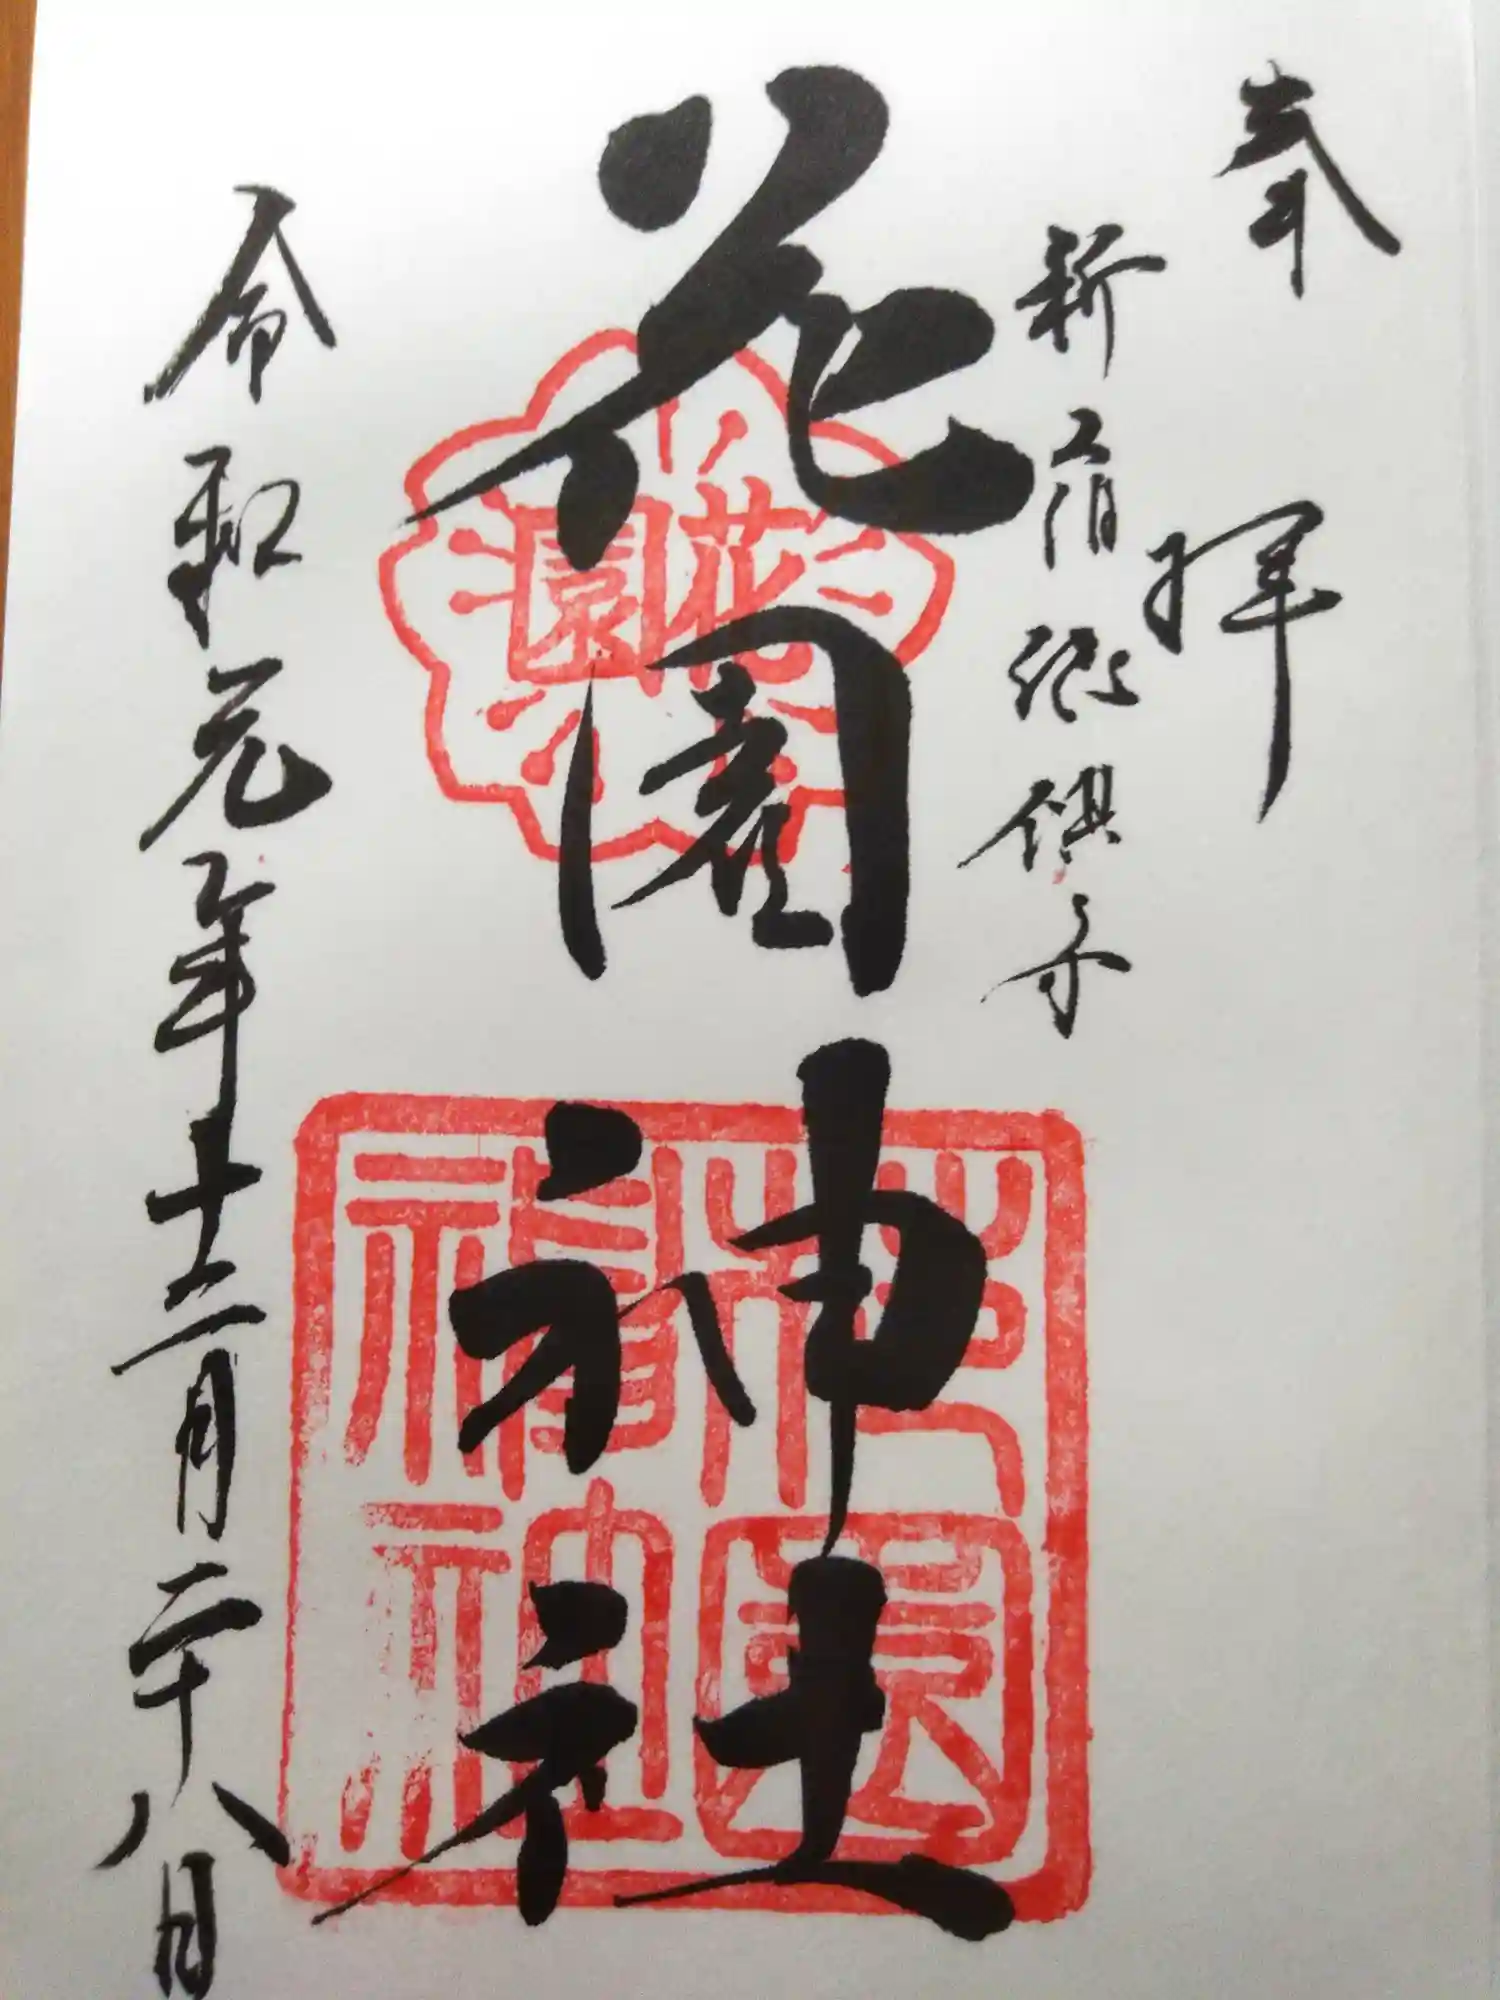 奉拝
新宿総鎮守
花園神社
花園
花園神社
令和元年十二月二十八日